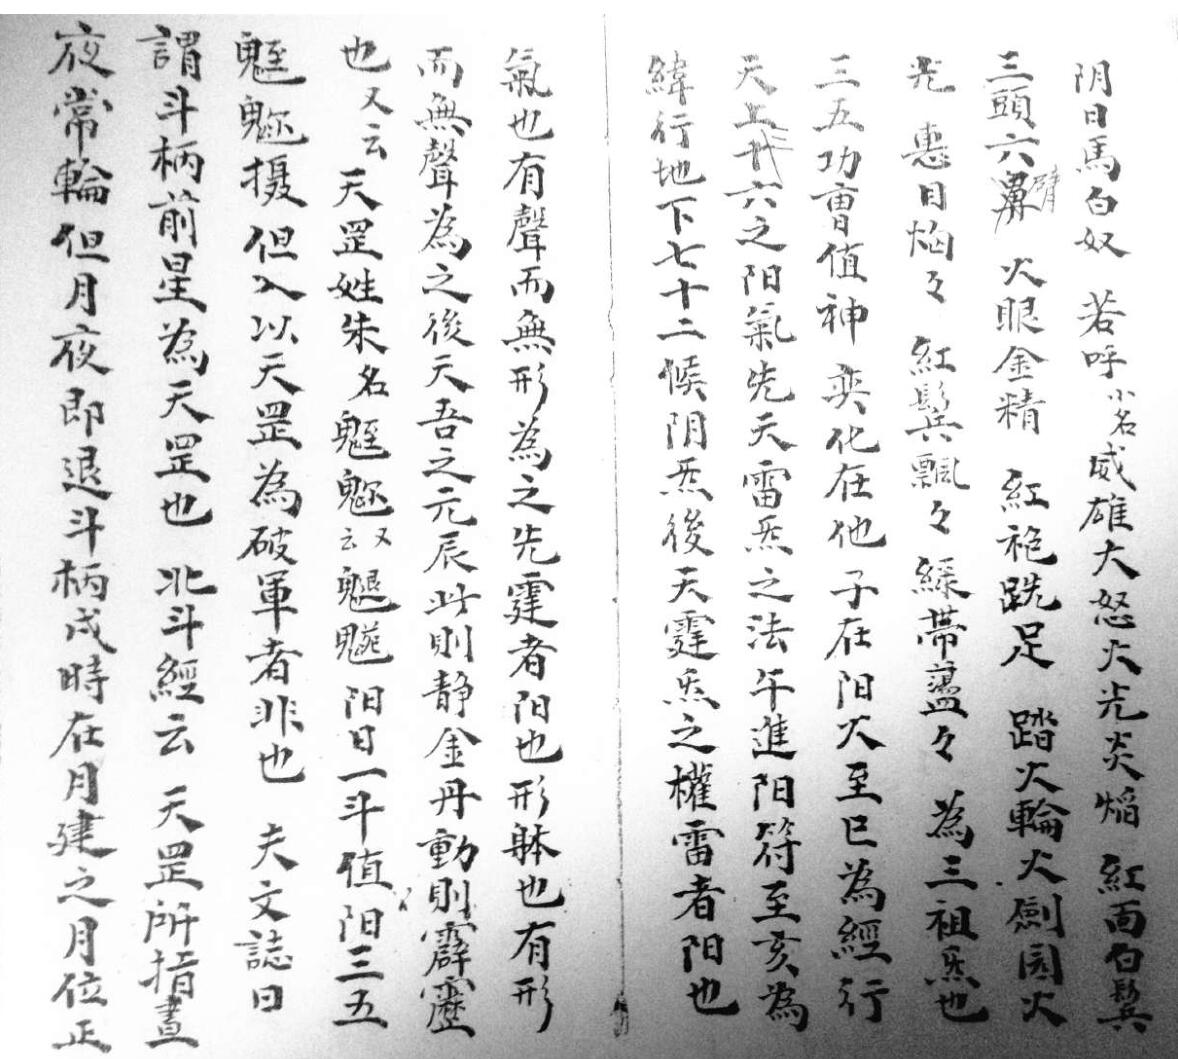 阴日馬白奴　若呼小名威雄大怒火光炎焰　紅面白鬓
三頭六臂　火眼金精　紅袍跣足　踏火輪火劍圓火
光　惠目焰々　紅鬓飄々　綵帶盪々　為三祖炁也
三五功曹值神　奕化在他　子在阳火至巳為經行
天上三六之阳氣先天雷炁之法午進阳符至亥為
緯行地下七十二候阴炁後天霆炁之權雷者阳也
氣也有聲而無形為之先霆者阳也形躰也有形
而無聲為之後天吾之元辰此則静金丹動則霹靂
也又云天罡姓朱名　又云　阳日一斗值阳三五
攝但入以天罡為破軍者非也　夫文誌曰
謂斗柄前星為天罡也　北斗經云　天罡所指晝
夜常輪但月夜即退斗柄戌時在月建之月位正